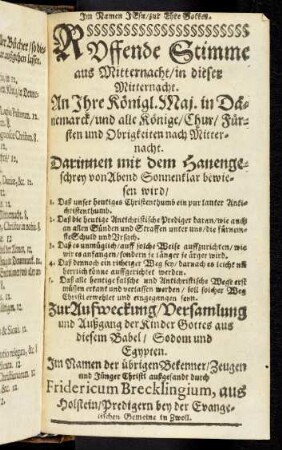 Im Namen JEsu/zur Ehre Gottes.
RUffende Stimme
aus Mitternacht/in dieser
Mitternacht.
An Ihre Königl. Maj. in Dä-
nemarck/und alle Könige/Chur/Für-
sten und Obrigkeiten nach Mitter-
nacht.
Darinnen mit dem Hanenge-
schrey von Abend Sonnenklar bewie-
sen wird/
1. Daß unser heutiges Christenthumb ein pur lauter Anti-
christenthumb.
2. Daß die heutige Antichristische Prediger daran/wie auch
an allen Sünden und Straffen unter uns/die fürnem-
ste Schuld und Ursach.
3. Daß es unmüglich/auff solche Weise auffzurichten/wie
wir es anfangen/sondern je länger je ärger wird.
4. Daß dennoch ein richtiger Weg sey/darnach es leicht
herrlich könne auffgerichtet werden.
5. Daß alle heutige falsche und Antichristische Wege erst
müssen erkant und verlassen werden/soll solcher Weg
Christi erwehlet und eingegangen seyn.
Zur Auffweckung/Versamlung
und Außgang der Kinder Gottes aus
diesem Babel/Sodom und
Egypten.
Im Namen der übrigen Bekenner/Zeugen
und Jünger Christi außgesandt durch
Fridericum Brecklingium, aus
Holstein/Predigern bey der Evange-
lischen Gemeine in Zwoll.